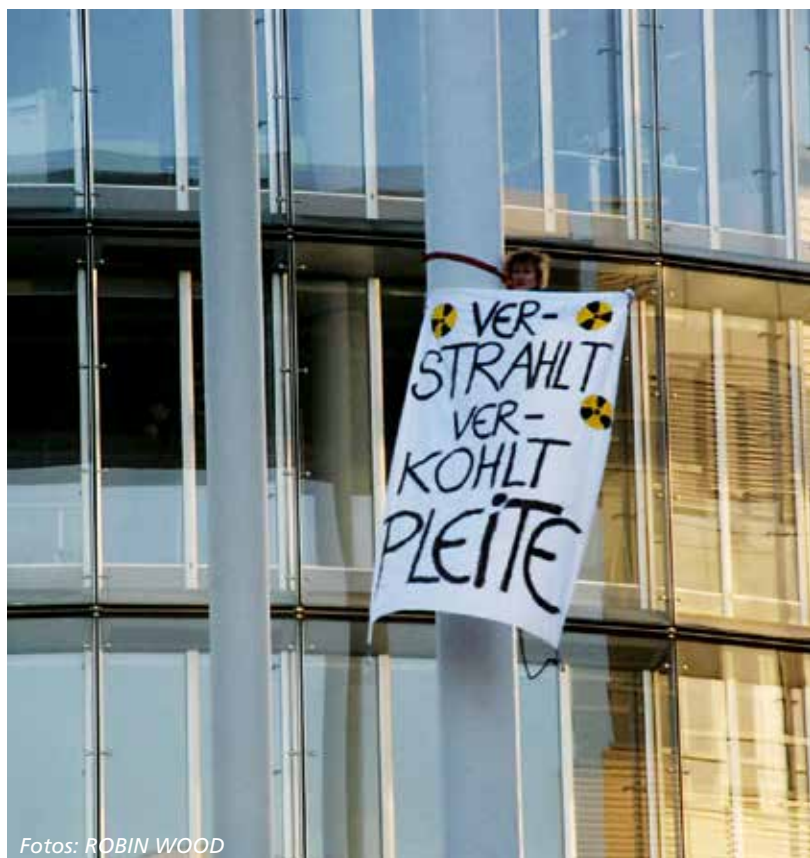 VER-
STRAHLT
VER-
KOHLT
PLEiTE
Fotos: ROBIN WOOD